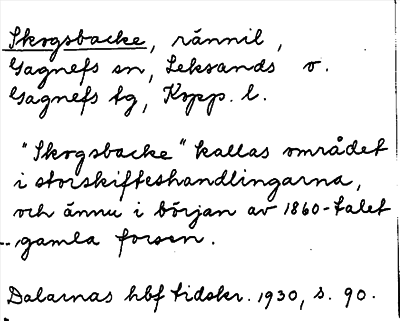 Skogsbacke, rännil,
Gagnefs sn, Leksands v.
Gagnefs tg, Kopp. l.
"Skogsbacke" kallas området
i storskifteshandlingarna,
och ännu i början av 1860-talet
gamla forsen.
Dalarnas hbf tidskr. 1930, s. 90.